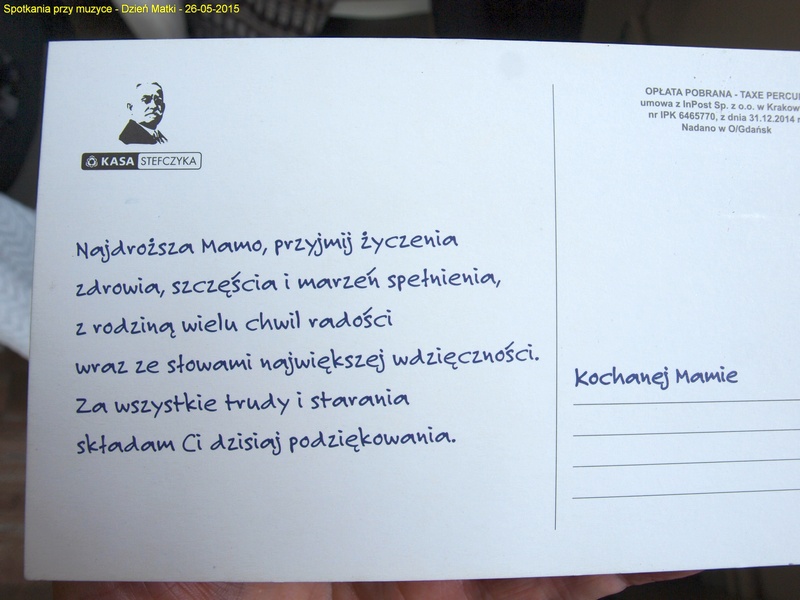 Spotkania przy muzyce - Dzień Matki - 26-05-2015
KASA STEFCZYKA
Najdroższa Mamo, przyjmij życzenia
zdrowia, szczęścia i marzeń spełnienia,
z rodziną wielu chwil radości
wraz ze słowami największej wdzięczności.
Za wszystkie trudy i starania
składam Ci dzisiaj podziękowania.
OPŁATA POBRANA - TAXE PERCU
umowa z InPost Sp. z o.o. w Krakow
nr IPK 6465770, z dnia 31.12.2014 r
Nadano w O/Gdańsk
Kochanej Mamie